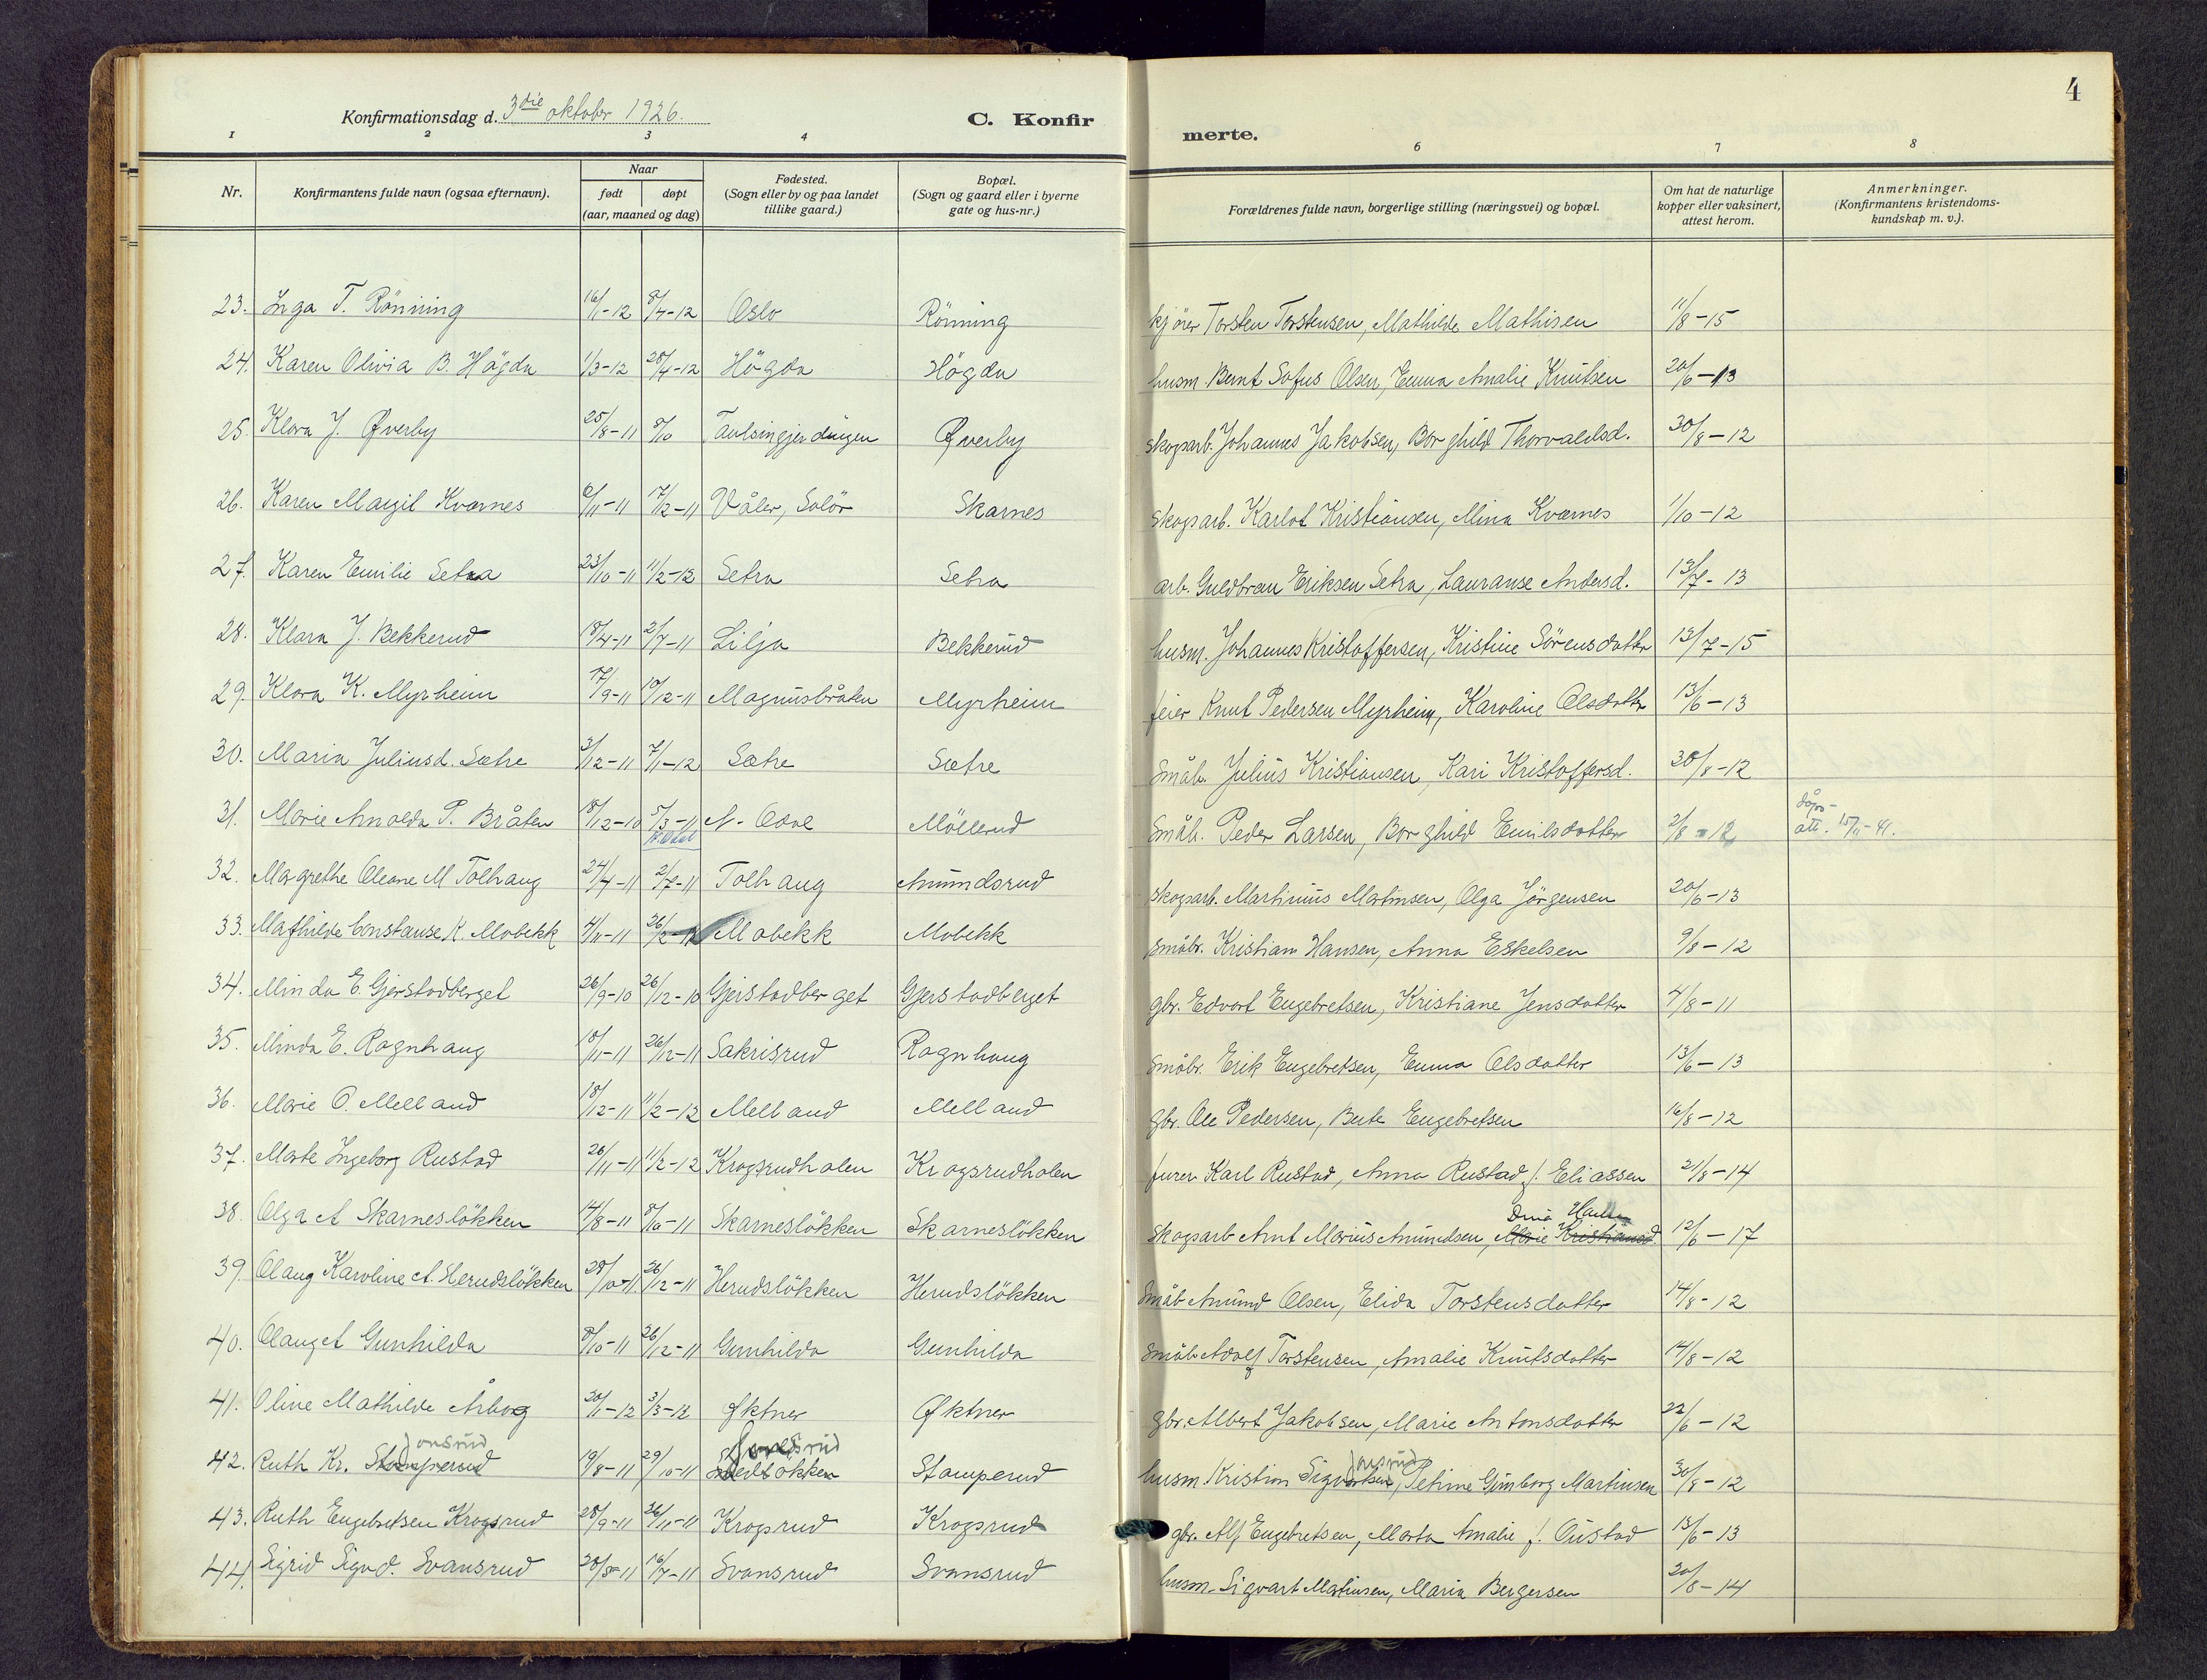 4
Konfirmationsdag d. 3die oktober 1926.
C. Konfir
merte.
1 2 3 4 6 7 8
Nr.
Konfirmantens fulde navn (ogsaa efternavn).
Naar
født døpt
(aar, maaned og dag)
Fødested.
(Sogn eller by og paa landet
tillike gaard.)
Bopæl.
(Sogn og gaard eller i byerne
gate og hus-nr.)
Forældrenes fulde navn, borgerlige stilling (næringsvei) og bopæl.
Om hat de naturlige
kopper eller vaksinert,
attest herom.
Anmerkninger.
(Konfirmantens kristendoms-
kundskap m. v.).
23. Inga T. Rönning 16/1-12 8/4-12 Oslo Rönning kjörer Torsten Torstensen, Mathilde Mathisen 11/8-15
24. Karen Olivia B. Högda 1/3-12 28/4-12 Högda Högda husm. Bernt Sofus Olsen, Emma Amalie Knutsen 20/6-13
25. Klara J. Øverby 25/8-11 8/10 Taulsingjerdingen Øverby skogsarb. Johannes Jakobsen, Borghild Thorvaldsd. 30/8-12
26. Karen Margit Kværnes 6/11-11 17/12-11 Våler, Solör Skarnes skogsarb. Karlot Kristiansen, Mina Kværnes 1/10-12
27. Karen Emilie Setra 23/10-11 11/2-12 Setra Setra arb. Guldbran Eriksen Setra, Lauranse Andersd. 13/7-13
28. Klara J. Bekkerud 18/4-11 2/7-11 Lilja Bekkerud husm. Johannes Kristoffersen, Kristine Sörensdatter 13/7-15
29. Klara K. Myrheim 17/9-11 10/12-11 Magnusbråten Myrheim feier Knut Pedersen Myrheim, Karoline Olsdatter 13/6-13
30. Maria Juliusd. Sætre 3/12-11 7/1-12 Sætre Sætre Småb. Julius Kristiansen, Kari Kristoffersd. 30/8-12
31. Marie Arnolda P. Bråten 18/12-10 5/3-11 N. Odal Möllerud Småb. Peder Larsen, Borghild Emilsdatter 2/8-12 dåps-
att. 15/11-41.
32. Margrethe Oleane M Tolhaug 24/4-11 2/7-11 Tolhaug Amundsrud skogsarb. Martinius Martinsen, Olga Jörgensen 20/6-13
33. Mathilde Constanse K. Mobekk 4/11-11 26/12-11 Mobekk Mobekk småbr. Kristian Hansen, Anna Eskelsen 9/8-12
34. Minda E. Gjerstadberget 26/9-10 26/12-10 Gjerstadberget Gjerstadberget gbr. Edvart Engebretsen, Kristiane Jensdatter 4/8-11
35. Minda E. Ragnhaug 18/11-11 26/12-11 Sakrisrud Ragnhaug Småbr. Erik Engebretsen, Emma Olsdatter 13/6-13
36. Marie O. Melland 18/12-11 11/2-12 Melland Melland gbr. Ole Pedersen, Berte Engebretsen 16/8-12
37. Marte Ingeborg Rustad 26/11-11 11/2-12 Krogsrudholen Krogsrudholen furer Karl Rustad, Anna Rustad f. Eliassen 21/8-14
38. Olga A Skarneslökken 14/8-11 8/10-11 Skarneslökken Skarneslökken Skogsarb Arnt Marius Amundsen, Marie Kristiansd. 12/6-17
39. Olaug Karoline A. Herudslökken 28/10-11 26/12-11 Herudslökken Herudslökken Småb Amund Olsen, Elida Torstensdatter 14/8-12
40. Olaug A Gunhilda 8/10-11 26/12-11 Gunhilda Gunhilda Småb Adolf Torstensen, Amalie Knutsdatter 14/8-12
41. Oline Mathilde Årbog 20/1-12 3/3-12 Øktner Øktner gbr. Albert Jakobsen, Marie Antonsdatter 22/6-12
Jonsrud
42. Ruth Kr. Stamperud 19/8-11 29/10-11 Stamperud husm. Kristian Sigvartsen, Petrine Gunborg Martinsen 30/8-12
43. Ruth Engebretsen Krogsrud 28/9-11 26/11-11 Krogsrud Krogsrud gbr. Alf Engebretsen, Marta Amalie f. Austad 13/6-13
44. Sigrid Sigvd. Svansrud 20/5-11 16/7-11 Svansrud Svansrud husm. Sigvart Martinsen, Maria Bergersen 20/8-14